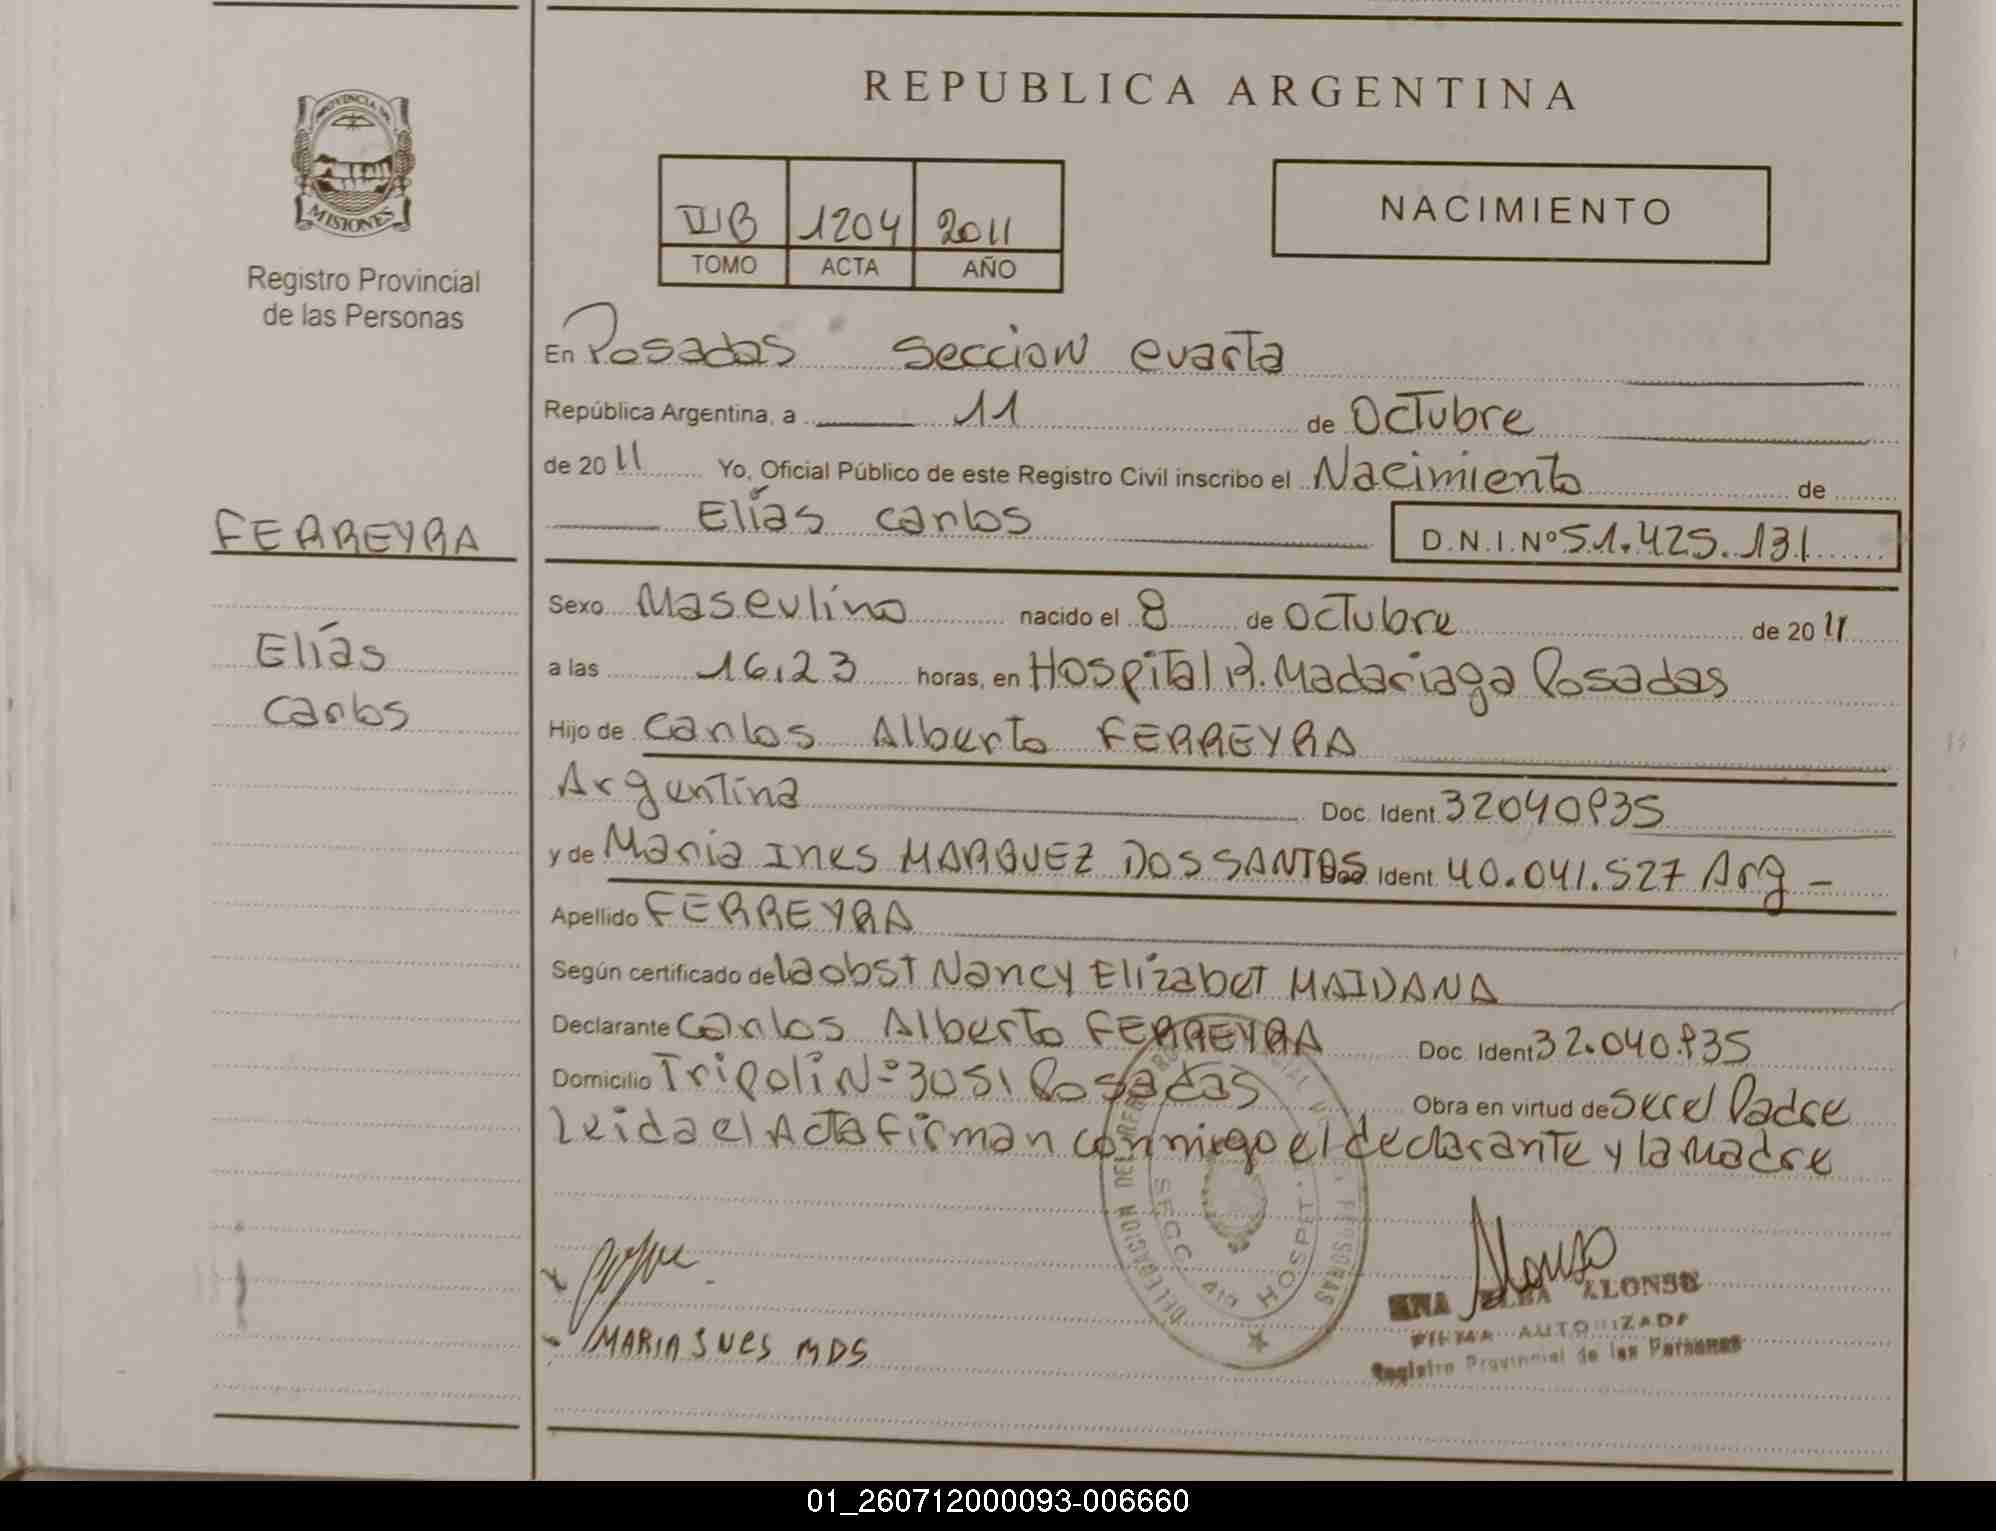 REPUBLICA ARGENTINA
PROVINCIA DE
MISIONES
Registro Provincial
de las Personas
IIB 1204 2011
TOMO ACTA AÑO
NACIMIENTO
En Posadas Seccion cuarta
República Argentina, a 11 de Octubre
de 2011 Yo, Oficial Público de este Registro Civil inscribo el Nacimiento de
Elías Carlos D.N.I.Nº 51.425.131
FERREYRA
Elías
Carlos
Sexo Masculino nacido el 8 de Octubre de 2011
a las 16,23 horas, en Hospital R. Madariaga Posadas
Hijo de Carlos Alberto FERREYRA
Argentina Doc. Ident. 32040935
y de Maria Ines MARQUEZ DOS SANTOS Doc. Ident. 40.041.527 Arg -
Apellido FERREYRA
Según certificado de la obst Nancy Elizabet MAIDANA
Declarante Carlos Alberto FERREYRA Doc. Ident 32.040.935
Domicilio Tripoli Nº 3051 Posadas Obra en virtud de Ser el Padre
Leida el Acta firman conmigo el declarante y la madre
DELEGACION DEL REG. PROVINCIAL DE PERSONAS
SECC. 4ta HOSPIT.
MARIA INES MDS
Alonso
ELBA ALONSO
FIRMA AUTORIZADA
Registro Provincial de las Personas
01_260712000093-006660